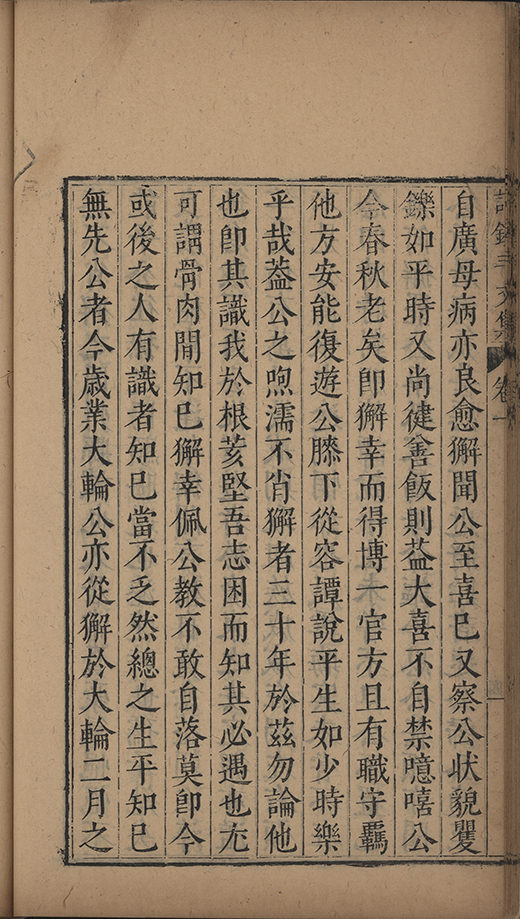 許鍾斗文集 卷一
自廣母病亦良愈獬聞公至喜已又察公狀貌矍
鑠如平時又尚徤善飯則葢大喜不自禁噫嘻公
今春秋老矣卽獬幸而得博一官方且有職守羈
他方安能復遊公膝下從容譚說平生如少時樂
乎哉葢公之喣濡不肖獬者三十年於茲勿論他
也卽其識我於根荄堅吾志困而知其必遇也尤
可謂骨肉閒知已獬幸佩公教不敢自落莫卽今
或後之人有識者知已當不乏然總之生平知已
無先公者今歲業大輪公亦從獬於大輪二月之